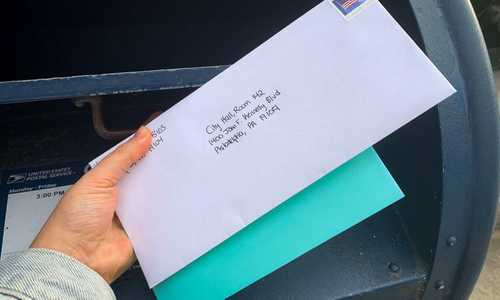 City Hall, Room 142
1400 John F. Kennedy Blvd
Philadelphia, PA 19107
UNITED STATES
POSTAL SERVICE
Monday - Friday
3:00 PM